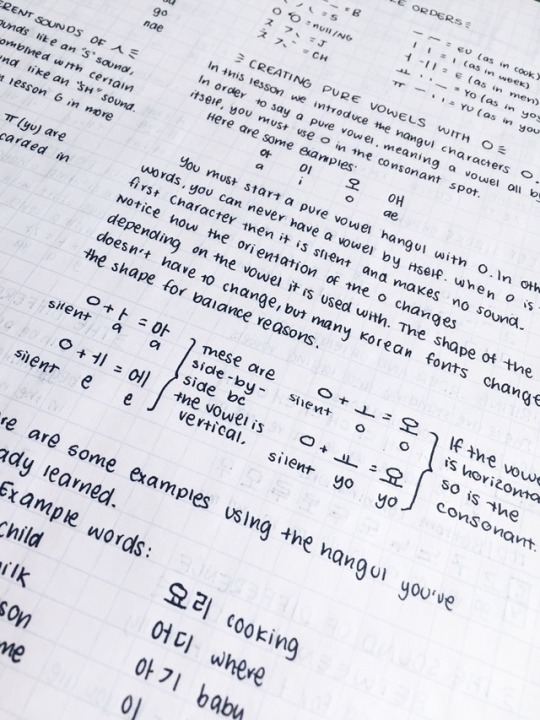 go
nae
ERENT SOUNDS OF ㅅ
unds like an 's' sound,
ombined with certain
und like an "SH" sound.
n lesson 6 in more
ㅠ (yu) are
carded in
ORDERS
= B
= S
= NULL/NG
= J
= CH
= EU (as in cook)
= I (as in week)
= E (as in men)
= YO (as in yo
= YU (as in you
CREATING PURE VOWELS WITH O
In this lesson we introduce the hangul characters O.
In order to say a pure vowel, meaning a vowel all by
itself, you must use O in the consonant spot.
Here are some examples:
아 이 요 애
a i o ae
You must start a pure vowel hangul with O. In oth
words, you can never have a vowel by itself. When O is
first character then it is silent and makes no sound.
Notice how the orientation of the O changes
depending on the vowel it is used with. The shape of the
doesn't have to change, but many Korean fonts change
the shape for balance reasons.
O + ㅏ = 아
silent a a
O + ㅔ = 에
silent e e
These are
side-by-
side bc
the vowel is
vertical.
O + ㅗ = 오
silent o o
O + ㅛ = 요
silent yo yo
If the vowe
is horizonta
so is the
consonant.
re are some examples using the hangul you've
ady learned.
Example words:
child
milk
son
me
요리 cooking
어디 where
아기 baby
이